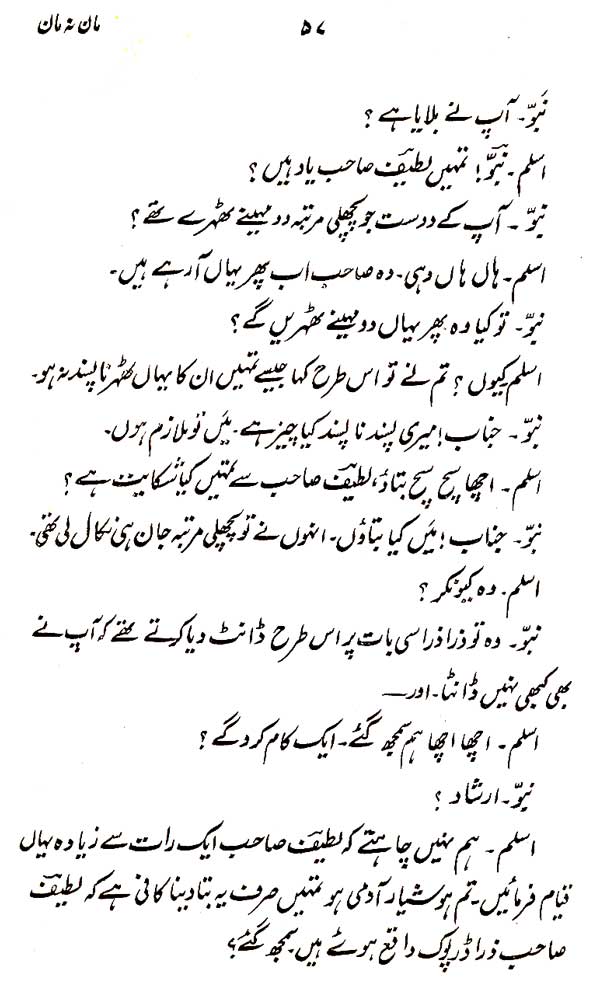 مان نہ مان
۵۷
نبّو۔ آپ نے بلایا ہے ؟
اسلم۔ نبّو! تمہیں لطیف صاحب یاد ہیں ؟
نبّو ۔ آپ کے دوست جو پچھلی مرتبہ دو مہینے ٹھہرے تھے ؟
اسلم۔ ہاں ہاں وہی۔ وہ صاحب اب پھر یہاں آرہے ہیں۔
نبّو۔ تو کیا وہ پھر یہاں دو مہینے ٹھہریں گے ؟
اسلم کیوں ؟ تم نے تو اس طرح کہا جیسے تمہیں ان کا یہاں ٹھہرنا پسند نہ ہو۔
نبّو ۔ جناب! میری پسند نا پسند کیا چیز ہے۔ میں تو ملازم ہوں۔
اسلم ۔ اچھا سچ سچ بتاؤ، لطیف صاحب سے تمہیں کیا شکایت ہے ؟
نبّو۔ جناب! میں کیا بتاؤں۔ انہوں نے تو پچھلی مرتبہ جان ہی نکال لی تھی۔
اسلم۔ وہ کیونکر ؟
نبّو۔ وہ تو ذرا ذرا سی بات پر اس طرح ڈانٹ دیا کرتے تھے کہ آپ نے
بھی کبھی نہیں ڈانٹا۔ اور—
اسلم ۔ اچھا اچھا ہم سمجھ گئے۔ ایک کام کرو گے ؟
نبّو۔ ارشاد ؟
اسلم ۔ ہم نہیں چاہتے کہ لطیف صاحب ایک رات سے زیادہ یہاں
قیام فرمائیں۔ تم ہوشیار آدمی ہو تمہیں صرف یہ بتا دینا کافی ہے کہ لطیف
صاحب ذرا ڈرپوک واقع ہوئے ہیں۔ سمجھ گئے؟